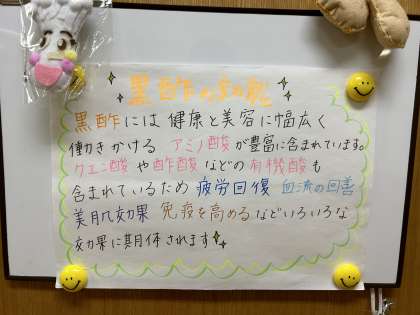 黒酢の効能
黒酢には健康と美容に幅広く
働きかける アミノ酸が豊富に含まれています。
クエン酸や酢酸などの有機酸も
含まれているため 疲労回復 血流の回善
美肌効果 免疫を高めるなどいろいろな
効果に期待されます